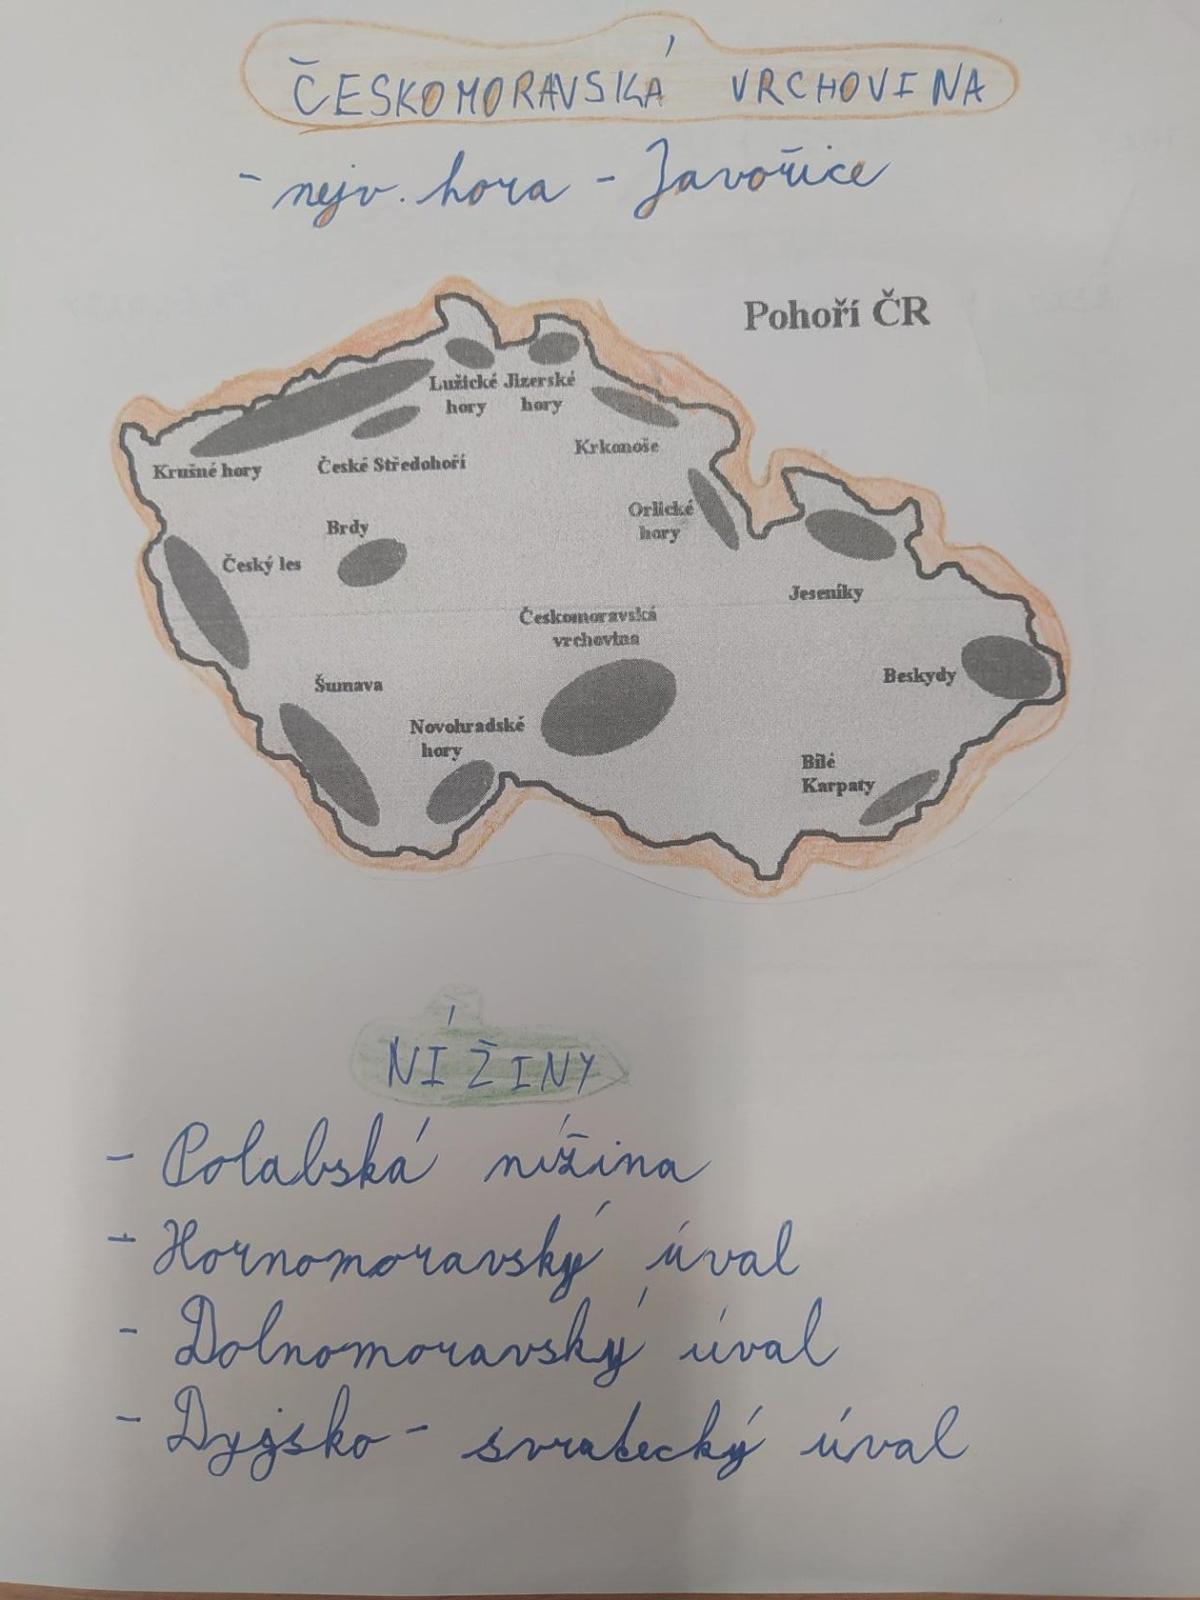 ČESKOMORAVSKÁ VRCHOVINA
- nejv. hora - Javořice
Pohoří ČR
Lužické Jizerské
hory hory
Krušné hory
České Středohoří
Krkonoše
Orlické
hory
Brdy
Český les
Jeseníky
Českomoravská
vrchovina
Beskydy
Šumava
Novohradské
hory
Bílé
Karpaty
NÍŽINY
- Polabská nížina
- Hornomoravský úval
- Dolnomoravský úval
- Dyjsko - svratecký úval